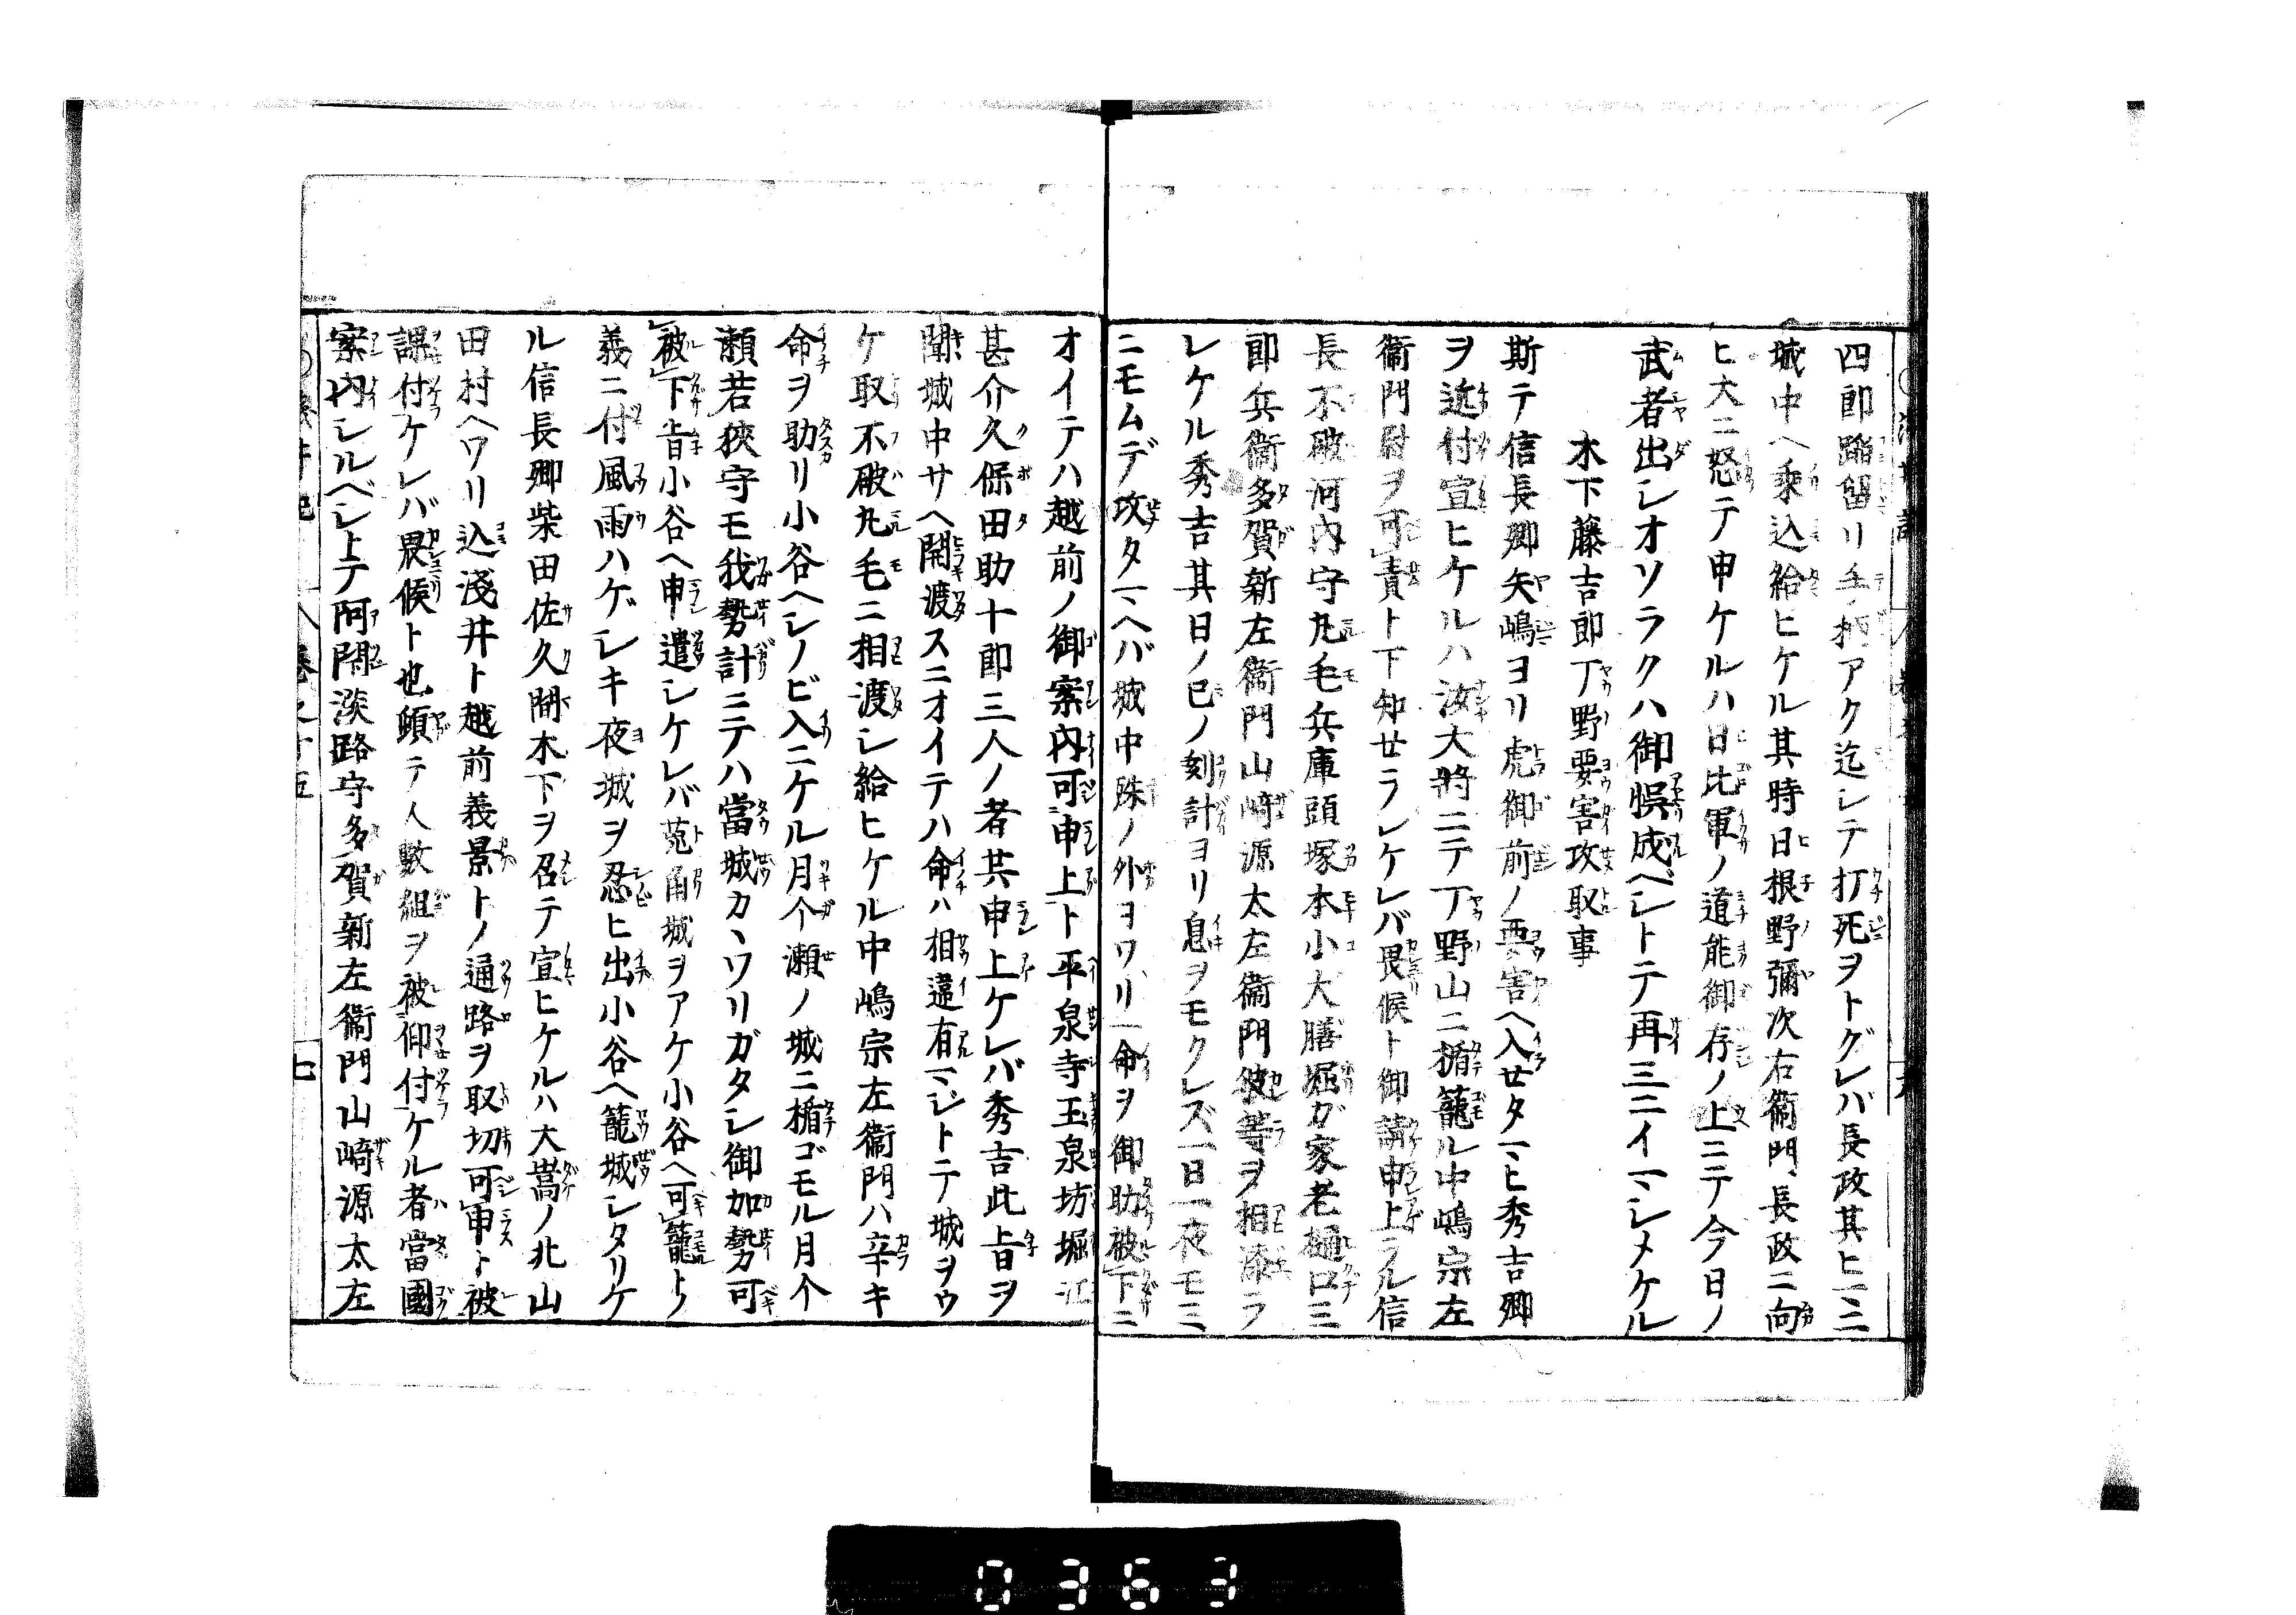 四郎蹈留リ手柄アク迄シテ打死ヲトグレバ長政其ヒマニ
城中ヘ乗込給ヒケル其時日根野彌次右衞門長政ニ向
ヒ大ニ怒テ申ケルハ日比軍ノ道能御存ノ上ニテ今日ノ
武者出シオソラクハ御悞成ベシトテ再三ニイマシメケル
木下藤吉郎丁野要害攻取事
斯テ信長卿矢嶋ヨリ虎御前ノ要害ヘ入セタマヒ秀吉卿
ヲ近付宣ヒケルハ汝大將ニテ丁野山ニ楯籠ル中嶋宗左
衞門尉ヲ可責ト下知セラレケレバ畏候ト御請申上ラル信
長不破河内守丸毛兵庫頭塚本小大膳堀ガ家老樋口三
郎兵衞多賀新左衞門山崎源太左衞門彼等ヲ相添ラ
レケル秀吉其日ノ巳ノ刻計ヨリ息ヲモクレズ一日一夜モミ
ニモムデ攻タマヘバ城中殊ノ外ヨワリ一命ヲ御助被下ニ
オイテハ越前ノ御案内可申上ト平泉寺玉泉坊堀江
甚介久保田助十郎三人ノ者共申上ケレバ秀吉此旨ヲ
聞城中サヘ開渡スニオイテハ命ハ相違有マジトテ城ヲウ
ケ取不破丸毛ニ相渡シ給ヒケル中嶋宗左衞門ハ辛キ
命ヲ助リ小谷ヘシノビ入ニケル月个瀬ノ城ニ楯ゴモル月个
瀬若狹守モ我勢計ニテハ當城カヽワリガタシ御加勢可
被下旨小谷ヘ申遣シケレバ菟角城ヲアケ小谷ヘ可籠トノ
義ニ付風雨ハゲシキ夜城ヲ忍ヒ出小谷ヘ籠城シタリケ
ル信長卿柴田佐久間木下ヲ召テ宣ヒケルハ大嵩ノ北山
田村ヘワリ込淺井ト越前義景トノ通路ヲ取切可申ト被
課付ケレバ畏候ト也頓テ人數組ヲ被仰付ケル者當國
案内シルベシトテ阿閉淡路守多賀新左衞門山崎源太左
七
0363